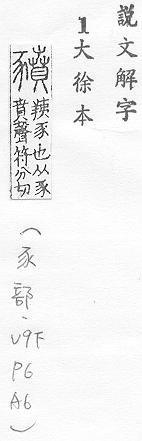 説文解字
1大徐本
豶 羠豕也从豕
賁聲符分切
（豕部·V9下
P6
A6）